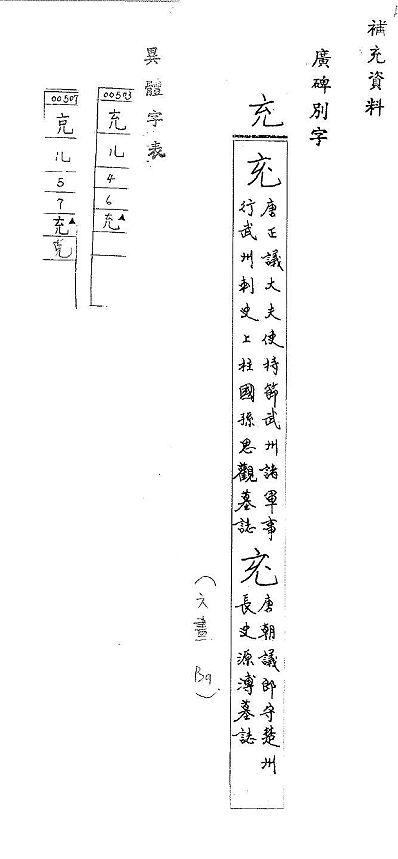 補充資料
廣碑別字
充
充 唐正議大夫使持節武州諸軍事
行武州刺史上柱國孫思觀墓誌
充 唐朝議郎守楚州
長史源溥墓誌
(六畫 Ba)
異體字表
00503
充
儿
4
6
充▲
00507
儿
5
7
充▲